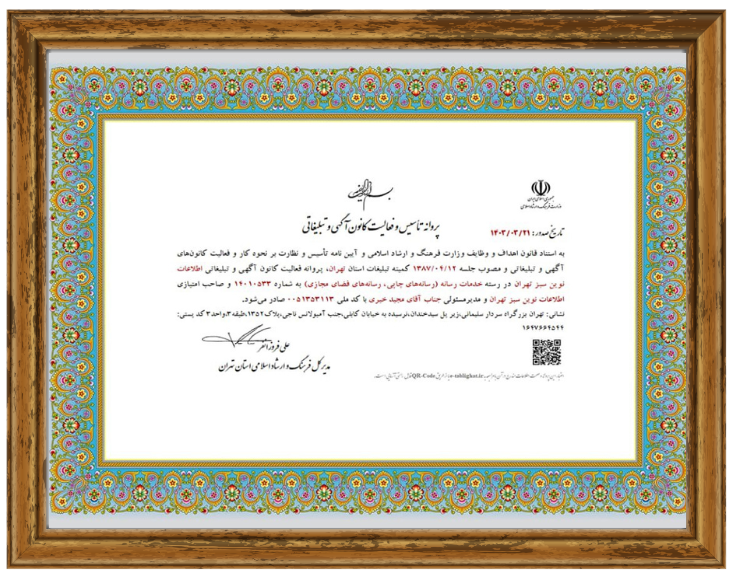 بسم الله الرحمن الرحیم
جمهوری اسلامی ایران
وزارت فرهنگ و ارشاد اسلامی
پروانه تأسیس و فعالیت کانون آگهی و تبلیغاتی
تاریخ صدور: ۱۴۰۳/۰۳/۲۱
به استناد قانون اهداف و وظایف وزارت فرهنگ و ارشاد اسلامی و آیین نامه تأسیس و نظارت بر نحوه کار و فعالیت کانون‌های
آگهی و تبلیغاتی و مصوب جلسه ۱۳۸۷/۰۴/۱۲ کمیته تبلیغات استان تهران، پروانه فعالیت کانون آگهی و تبلیغاتی اطلاعات
نوین سبز تهران در رسته خدمات رسانه (رسانه‌های چاپی، رسانه‌های فضای مجازی) به شماره ۱۴۰۱۰۵۳۳ و صاحب امتیازی
اطلاعات نوین سبز تهران و مدیرمسئولی جناب آقای مجید خیری با کد ملی ۰۰۵۱۳۵۳۱۱۳ صادر می‌شود.
نشانی: تهران بزرگراه سردار سلیمانی،زیر پل سیدخندان،نرسیده به خیابان کابلی،جنب آمبولانس ناجی،پلاک۱۳۵۲،طبقه۳،واحد۳ کد پستی:
۱۶۴۷۶۶۴۵۴۴
علی فروزانفر
مدیرکل فرهنگ و ارشاد اسلامی استان تهران
e-tablighat.ir QR-Code